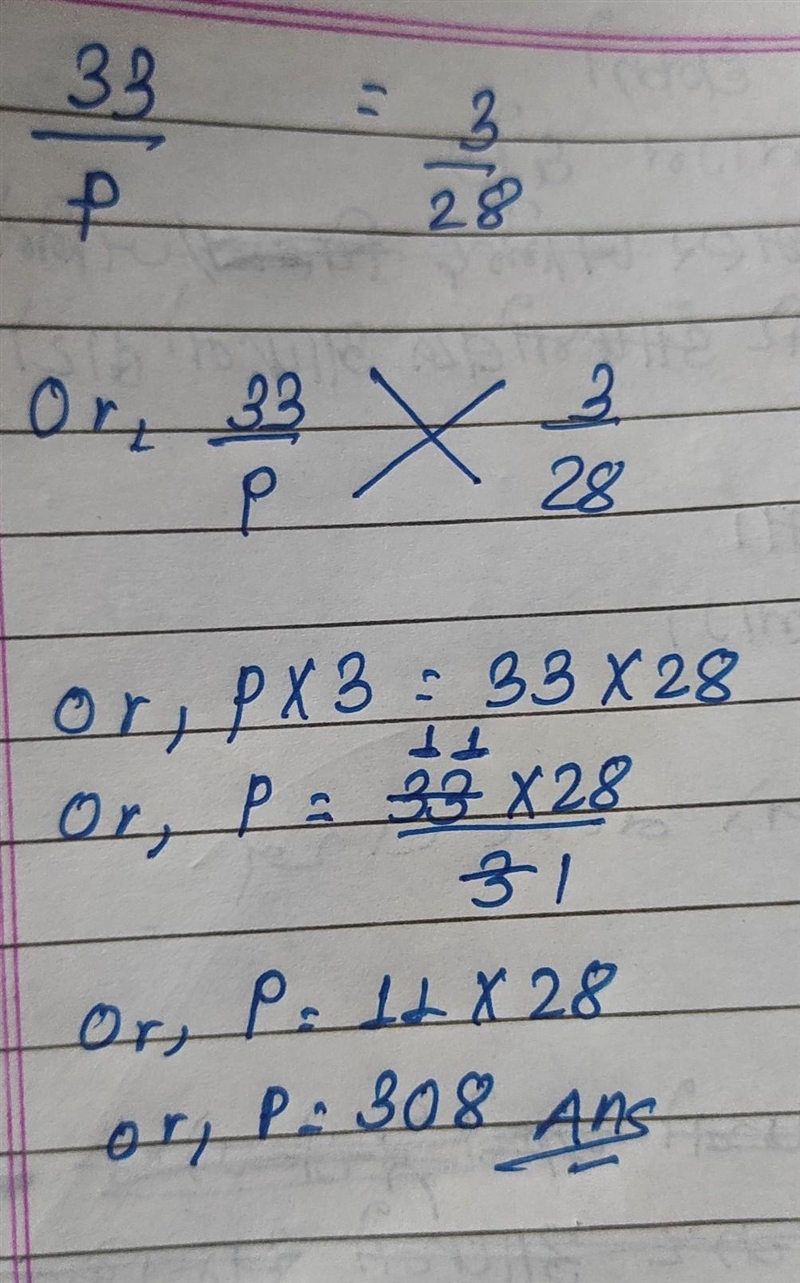 33/P = 3/28
Or, 33/P 3/28
Or, P X 3 = 33 X 28
Or, P = 33 11 X 28 / 3 1
Or, P = 11 X 28
or, P = 308 Ans